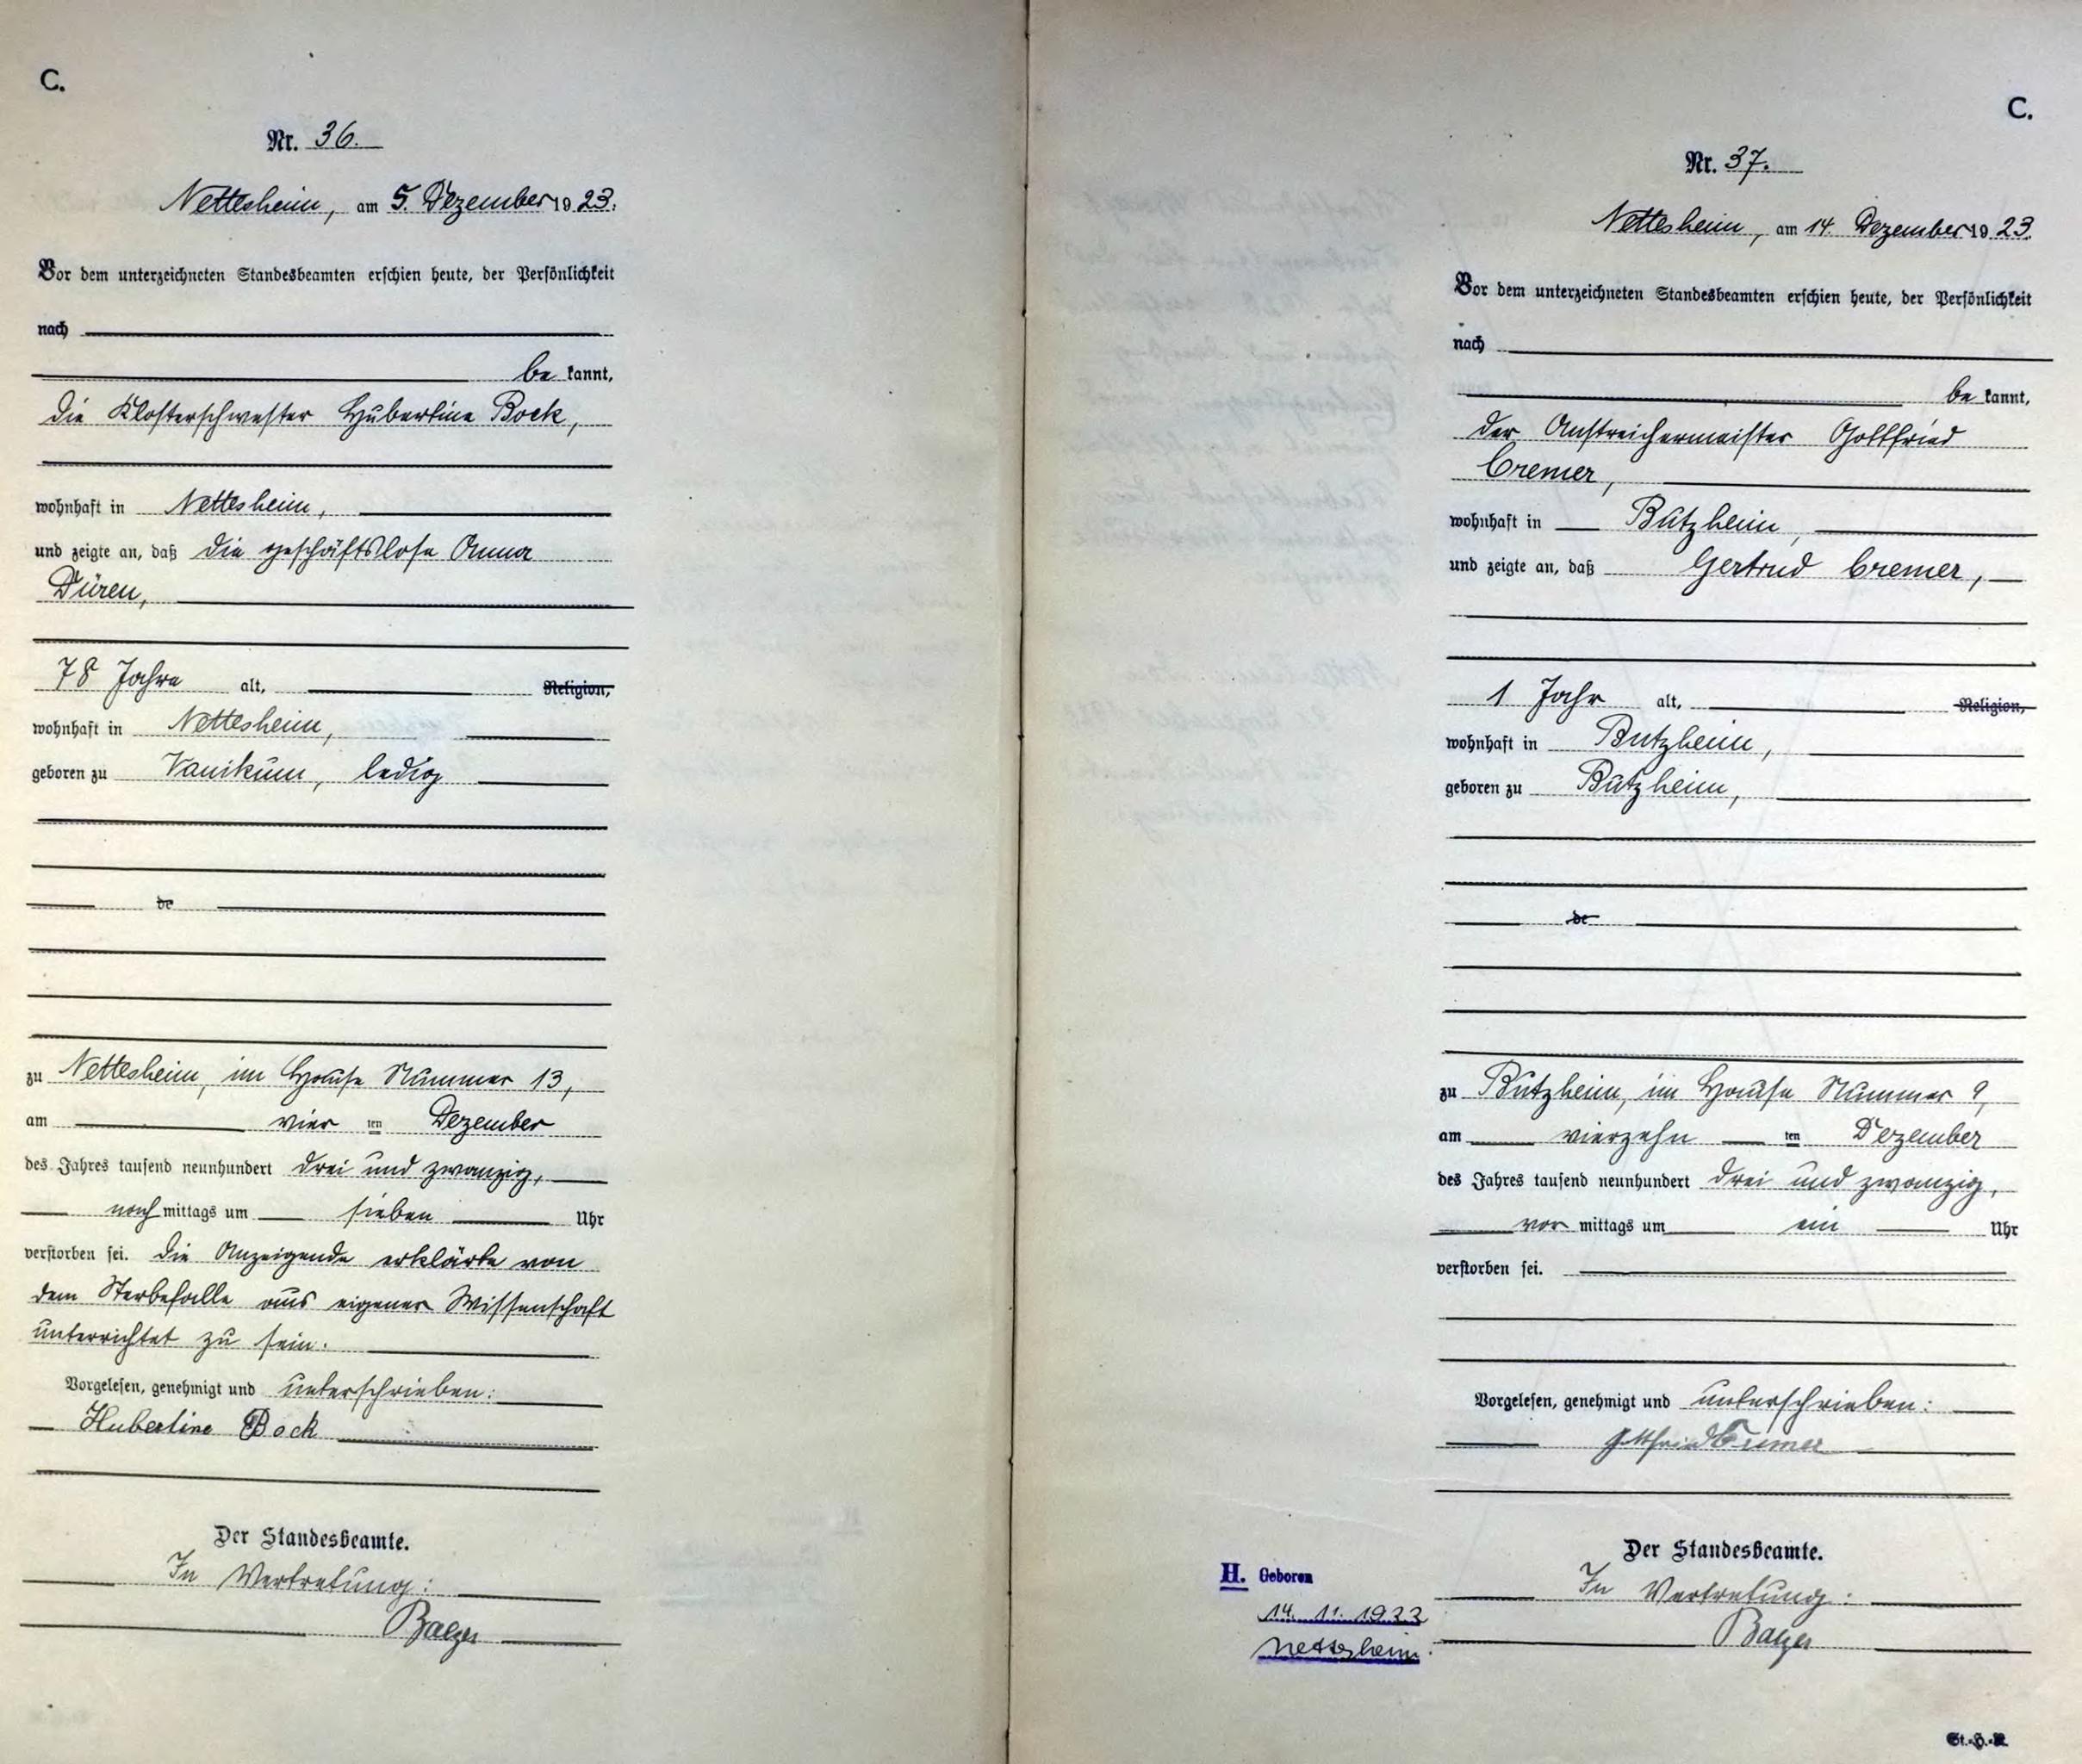 C.
Nr. 36.
Nettesheim, am 5. Dezember 1923.
Vor dem unterzeichneten Standesbeamten erschien heute, der Persönlichkeit
nach
be kannt,
die Klosterschwester Hubertine Bock,
wohnhaft in Nettesheim,
und zeigte an, daß die geschäftslose Anna
Düren,
78 Jahre alt, Religion,
wohnhaft in Nettesheim,
geboren zu Vanikum, ledig
de
zu Nettesheim, im Hause Nummer 13,
am vier ten Dezember
des Jahres tausend neunhundert drei und zwanzig,
nach mittags um sieben Uhr
verstorben sei. Die Anzeigende erklärte von
dem Sterbefalle aus eigener Wissenschaft
unterrichtet zu sein.
Vorgelesen, genehmigt und unterschrieben:
Hubertine Bock
Der Standesbeamte.
In Vertretung:
C.
Nr. 37.
Nettesheim, am 14. Dezember 1923.
Vor dem unterzeichneten Standesbeamten erschien heute, der Persönlichkeit
nach
be kannt,
der Anstreichermeister Gottfried
Cremer,
wohnhaft in Butzheim,
und zeigte an, daß Gertrud Cremer,
1 Jahr alt, Religion,
wohnhaft in Butzheim,
geboren zu Butzheim,
de
zu Butzheim, im Hause Nummer 9,
am vierzehn ten Dezember
des Jahres tausend neunhundert drei und zwanzig,
vor mittags um ein Uhr
verstorben sei.
Vorgelesen, genehmigt und unterschrieben:
Gottfried Cremer
Der Standesbeamte.
In Vertretung:
H. Geboren
14. 11. 1922
Nettesheim.